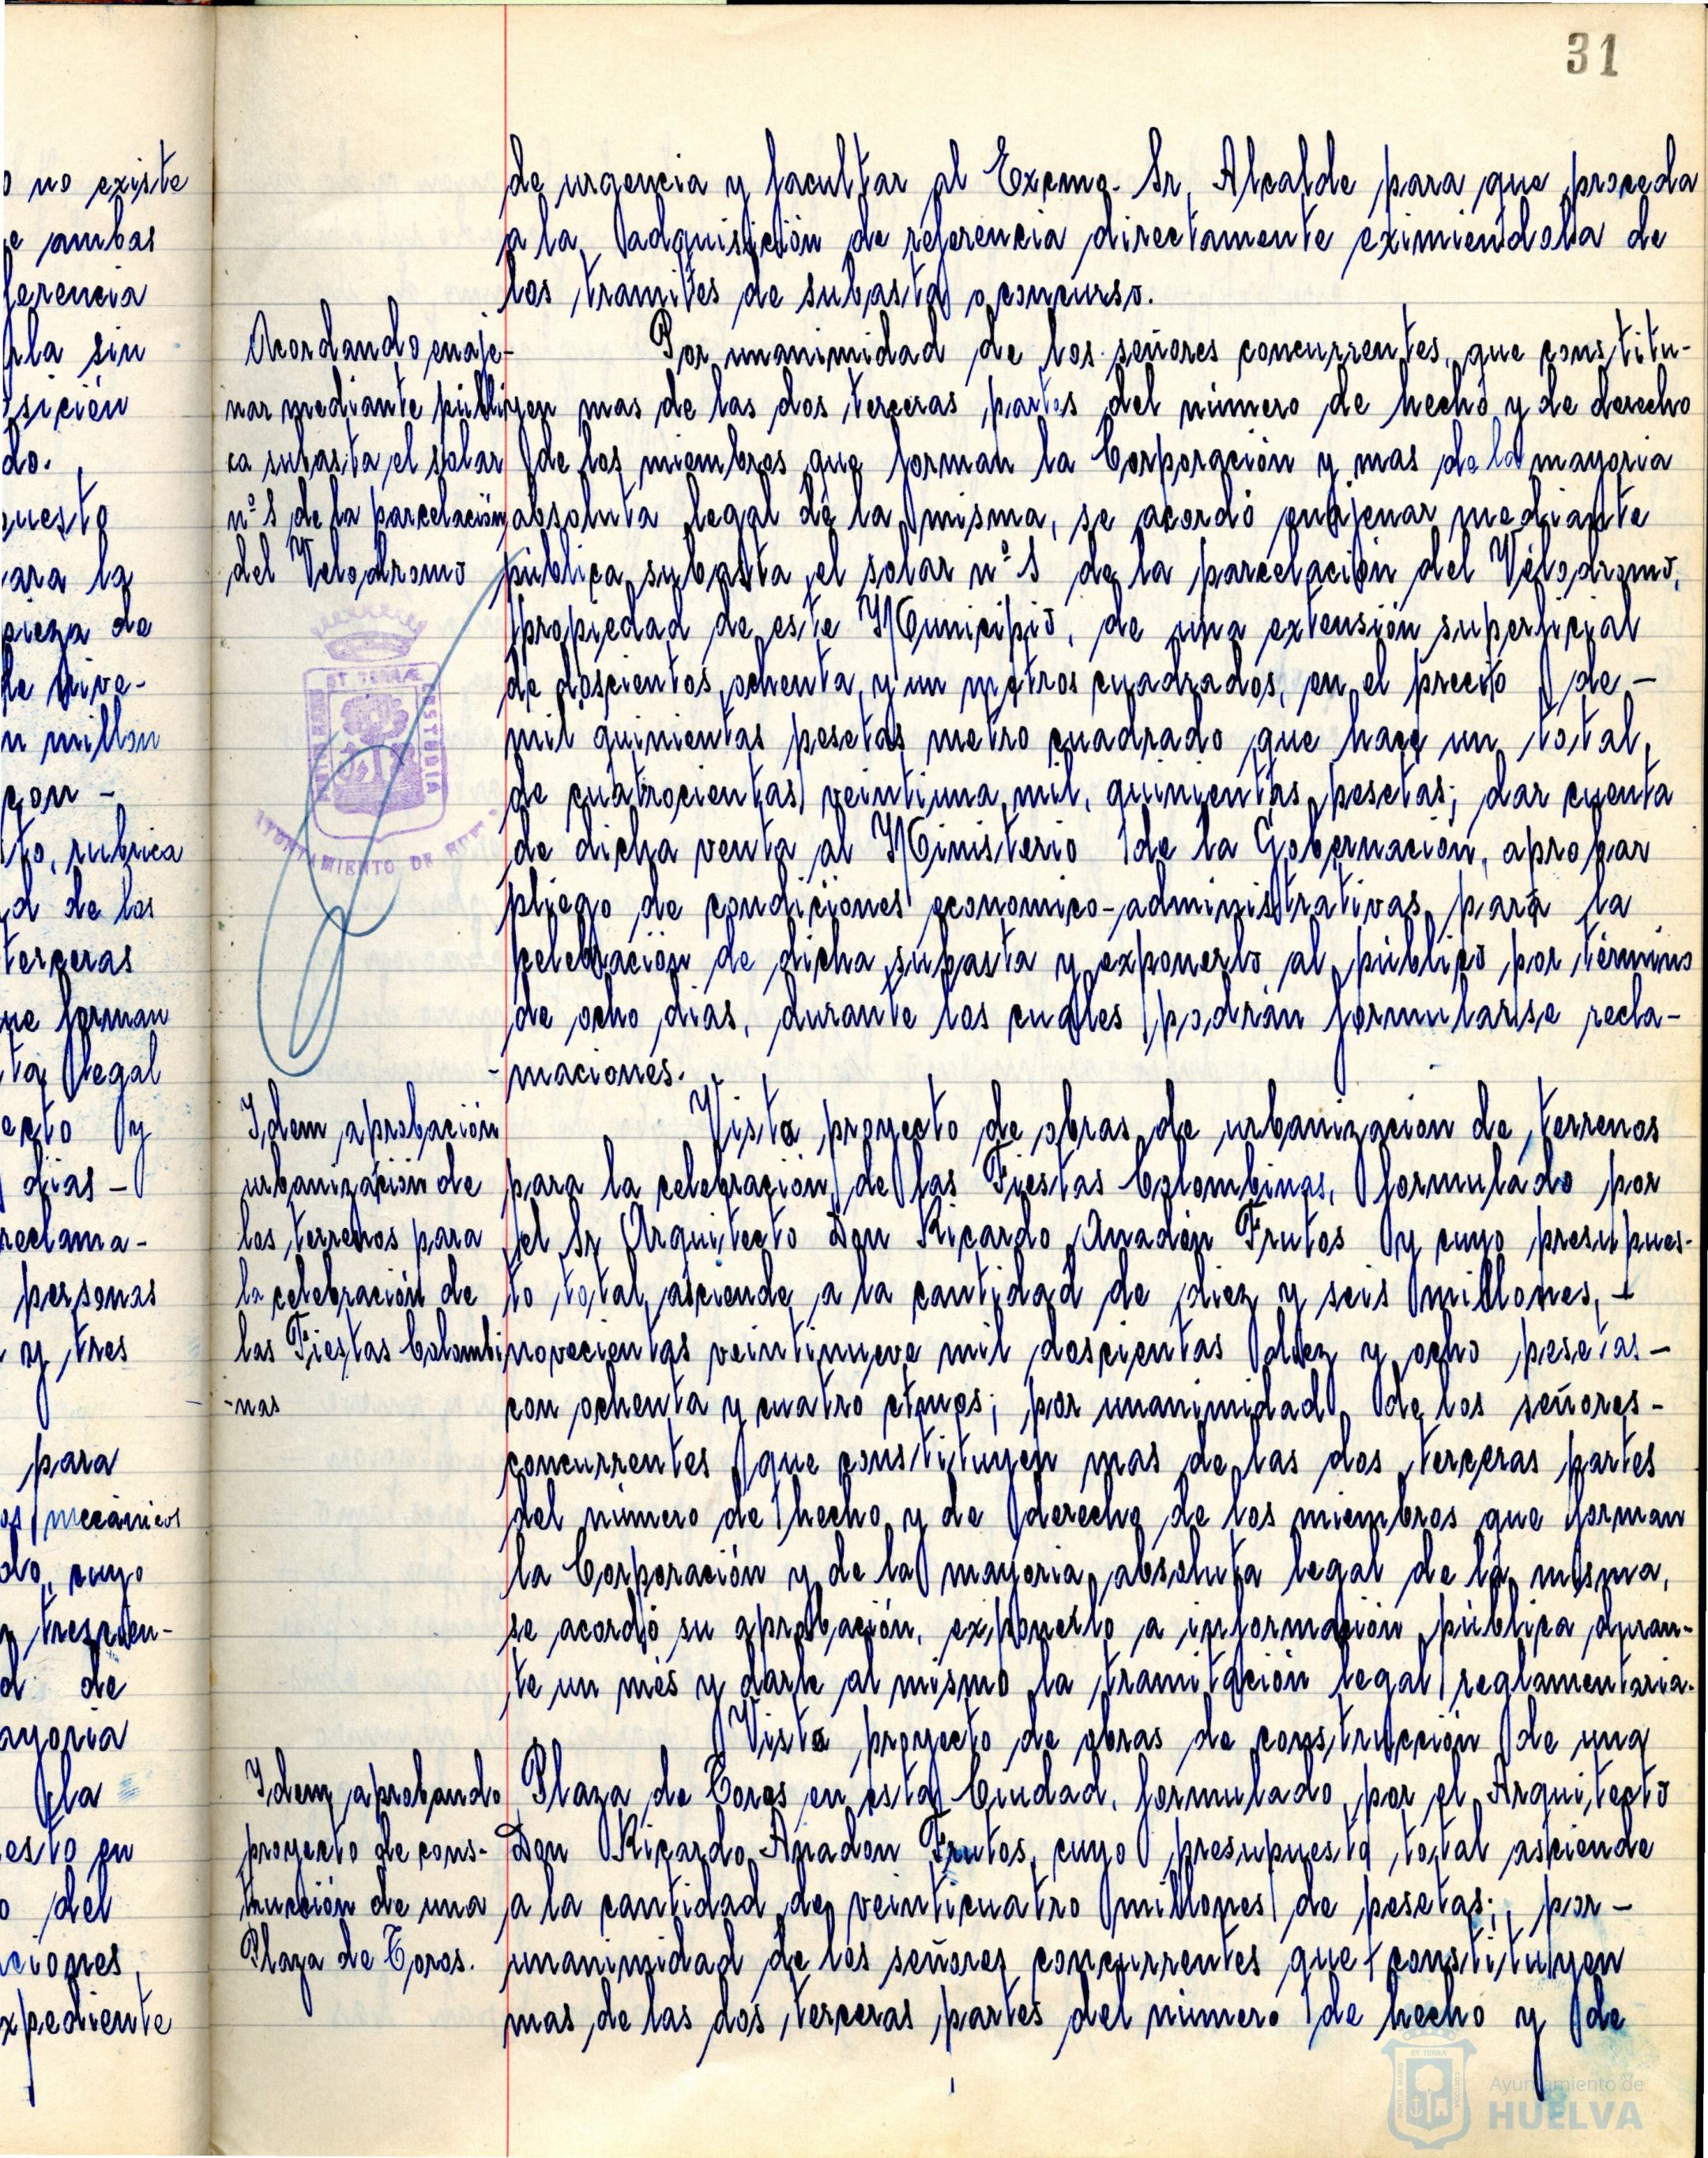 31
de urgencia y facultar al Excmo. Sr. Alcalde para que proceda
a la adquisición de referencia directamente eximiendola de
los tramites de subasta o concurso.
Acordando enaje-
nar mediante públi
ca subasta el solar
nº 1 de la parcelación
del Velodromo
Por unanimidad de los señores concurrentes, que constitu-
yen mas de las dos terceras partes del número de hecho y de derecho
de los miembros que forman la Corporación y mas de la mayoria
absoluta legal de la misma, se acordó enajenar mediante
pública subasta el solar nº 1 de la parcelación del Velodromo,
propiedad de este Municipio, de una extensión superficial
de doscientos ochenta y un metros cuadrados, en el precio de -
mil quinientas pesetas metro cuadrado que hace un total
de cuatrocientas veintiuna mil, quinientas pesetas; dar cuenta
de dicha venta al Ministerio de la Gobernación, aprobar
pliego de condiciones economico-administrativas para la
celebración de dicha subasta y exponerlo al público por término
de ocho dias, durante los cuales podrán formularse recla-
-maciones.
Idem aprobación
urbanización de
los terrenos para
la celebración de
las Fiestas Colombi
-nas
Visto proyecto de obras de urbanización de terrenos
para la celebración de las Fiestas Colombinas, formulado por
el Sr Arquitecto Don Ricardo Anadón Frutos y cuyo presupues-
to total asciende a la cantidad de diez y seis millones, -
novecientas veintinueve mil doscientas diez y ocho pesetas -
con ochenta y cuatro ctmos; por unanimidad de los señores -
concurrentes que constituyen mas de las dos terceras partes
del número de hecho y de derecho de los miembros que forman
la Corporación y de la mayoria absoluta legal de la misma,
se acordó su aprobación, exponerlo a información pública duran-
te un més y darle al mismo la tramitación legal reglamentaria.
Visto proyecto de obras de construcción de una
Idem aprobando
proyecto de cons-
trucción de una
Plaza de Toros.
Plaza de Toros en esta Ciudad, formulado por el Arquitecto
Don Ricardo Anadon Frutos, cuyo presupuesto total asciende
a la cantidad de veinticuatro millones de pesetas; por -
unanimidad de los señores concurrentes que constituyen
mas de las dos terceras partes del número de hecho y de
no existe
ambas
la sin
do.
ara la
de
n millon
con -
to, rubrica
d de los
terceras
forman
legal
y
dias -
reclama-
personas
y tres
para
mecánicos
cuyo
de
ayoria
la
en
del
ciones
xpediente
ET TERRÆ
AYUNTAMIENTO DE
Ayuntamiento de
HUELVA